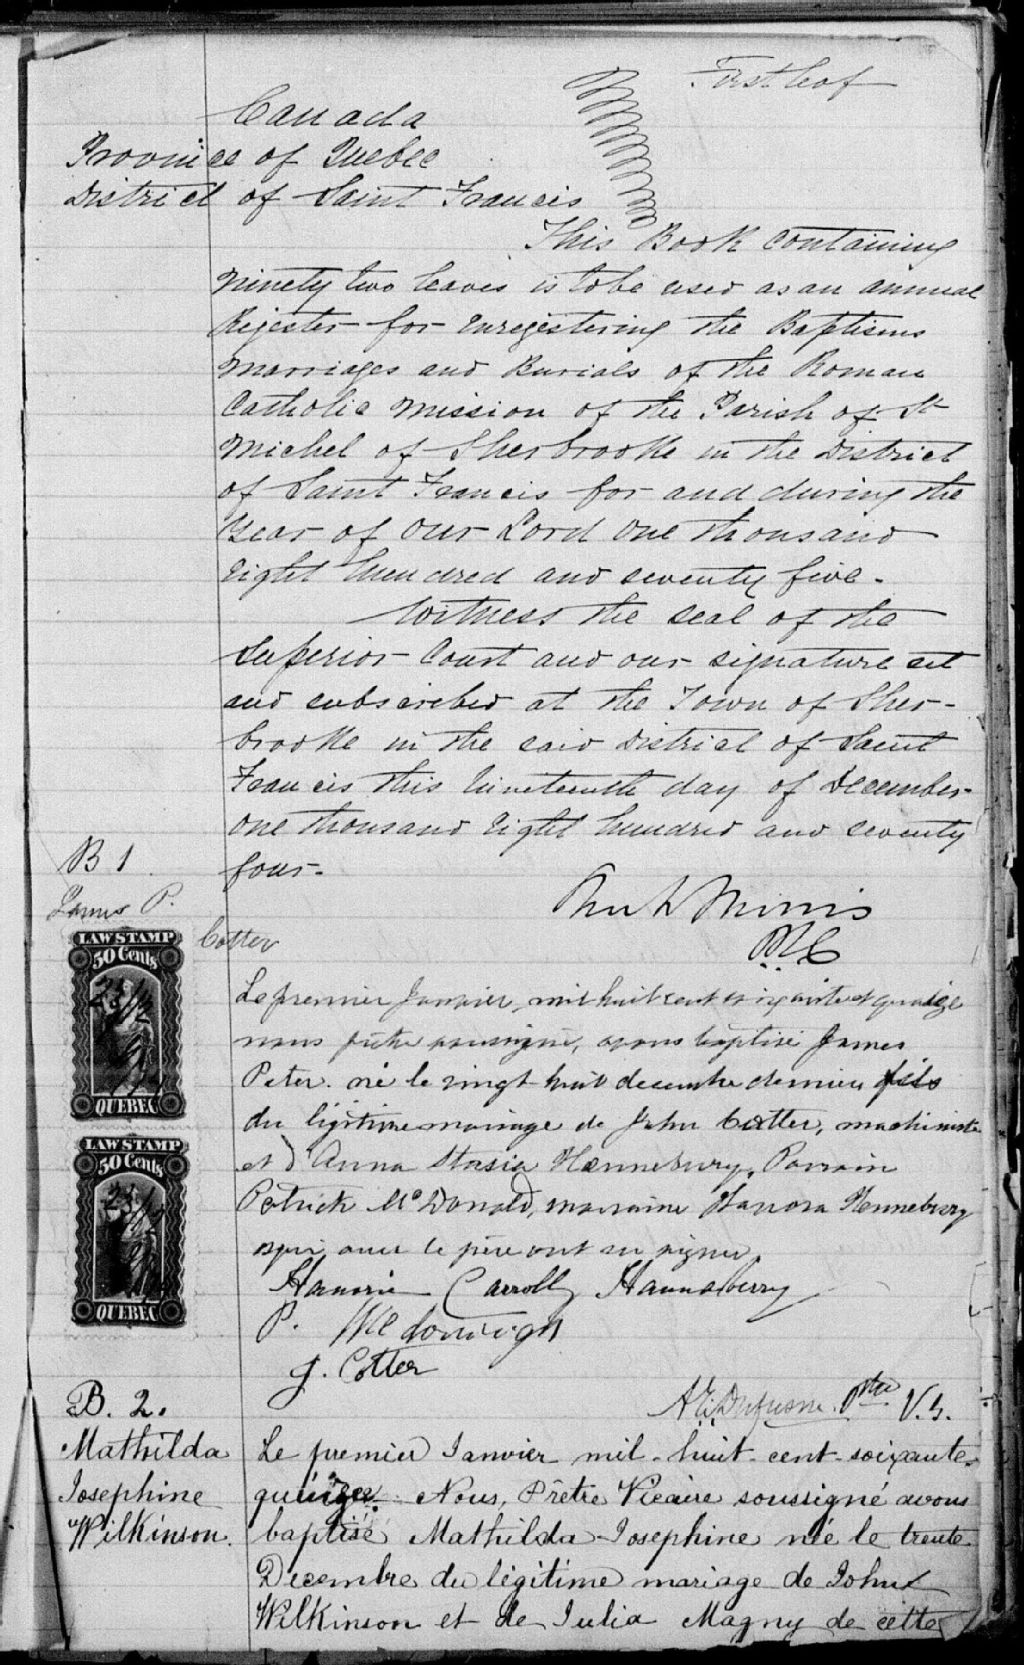 First leaf
Canada
Province of Quebec
District of Saint Francis
This Book containing
ninety two leaves is to be used as an annual
Rejester for Enregestering the Baptisms
Marriages and Burials of the Roman
Catholic Mission of the Parish of St
Michel of Sherbrooke in the District
of Saint Francis for and during the
Year of Our Lord One thousand
Eight hundred and seventy five.
Witness the seal of the
Superior Court and our signature set
and subscribed at the Town of Sher-
brooke in the said District of Saint
Francis this Nineteenth day of December
One thousand Eight hundred and seventy
four.
B 1
James P.
Cotter
Short & Morris
P.S.C
LAW STAMP
50 Cents
QUEBEC
LAW STAMP
50 Cents
QUEBEC
Le premier Janvier, mil huit cent soixante et quinze
nous prêtre soussigné, avons baptisé James
Peter. né le vingt huit decembre dernier fils
du légitime mariage de John Cotter, machiniste
et d'Anna Stasia Hennebury, Parrain
Patrick McDonald, marraine Hanora Hennebury
qui avec le père ont su signer.
Hanorie Carroll Hannaberry
P.
J. Cotter
A. E. Dufresne Ptre V. G.
B. 2.
Mathilda
Josephine
Wilkinson.
Le premier Janvier mil-huit-cent-soixante-
quinze. Nous, Prêtre Vicaire soussigné avons
baptisé Mathilda-Josephine née le trente
Decembre du légitime mariage de John
Wilkinson et de Julia Magny de cette